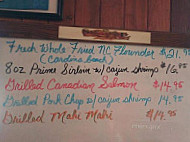 Fresh Whole Fried NC Flounder $21.95
(Carolina Beach)
8oz Prime Sirloin w/ cajun shrimp $16.95
Grilled Canadian Salmon $14.95
Grilled Pork Chop w/ cajun shrimp 14.95
Grilled Mahi Mahi $19.95